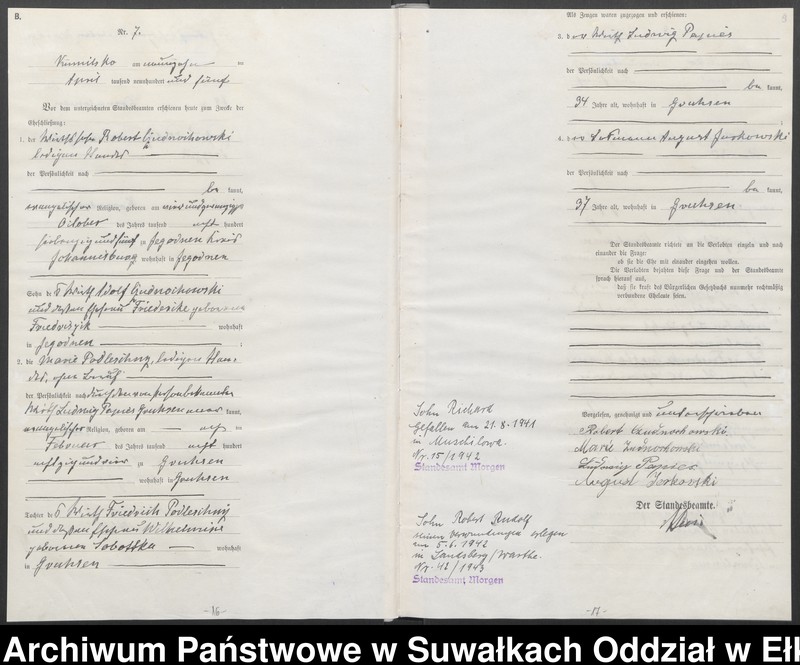 B.
Nr. 7.
Kumilsko am neunzehn ten
April tausend neunhundert und fünf
Vor dem unterzeichneten Standesbeamten erschienen heute zum Zwecke der
Eheschließung:
1. der Wirthssohn Robert
ledigen Standes
der Persönlichkeit nach
be kannt,
evangelischer Religion, geboren am vierundzwanzigsten
October des Jahres tausend acht hundert
siebenzig und fünf zu Jegodnen Kreis
Johannisburg, wohnhaft in Jegodnen
Sohn des Wirth Adolf
und dessen Ehefrau Friedericke geborene
wohnhaft
in Jegodnen ;
2. die Marie Podleschny, ledigen Stan-
des, ohne Beruf
der Persönlichkeit nach durch den von Person bekannten
Wirth Ludwig Papies Gruhsen aner kannt,
evangelischer Religion, geboren am acht ten
Februar des Jahres tausend acht hundert
achtzig und vier zu Gruhsen
wohnhaft in Gruhsen
Tochter des Wirth Friedrich Podleschny
und dessen Ehefrau Wilhelmine
geborenen Sobottka wohnhaft
in Gruhsen
- 16 -
9
Als Zeugen waren zugezogen und erschienen:
3. der Wirth Ludwig Papies
der Persönlichkeit nach
be kannt,
34 Jahre alt, wohnhaft in Gruhsen ;
4. der Losmann August Jorkowski
der Persönlichkeit nach
be kannt,
37 Jahre alt, wohnhaft in Gruhsen
Der Standesbeamte richtete an die Verlobten einzeln und nach
einander die Frage:
ob sie die Ehe mit einander eingehen wollen.
Die Verlobten bejahten diese Frage und der Standesbeamte
sprach hierauf aus,
daß sie kraft des Bürgerlichen Gesetzbuchs nunmehr rechtmäßig
verbundene Eheleute seien.
Vorgelesen, genehmigt und unterschrieben
Robert Gudnochowski
Marie Gudnochowski
Ludwig Papies
August Jorkowski
Der Standesbeamte.
Sohn Richard
Gefallen am 21.8.1941
in Muschilowa.
Nr. 15/1942
Standesamt Morgen
Sohn Robert Rudolf
seinen Verwundungen erlegen
am 5.6.1942
in Landsberg/Warthe.
Nr. 42/1943
Standesamt Morgen
- 17 -
Archiwum Państwowe w Suwałkach Oddział w Eł